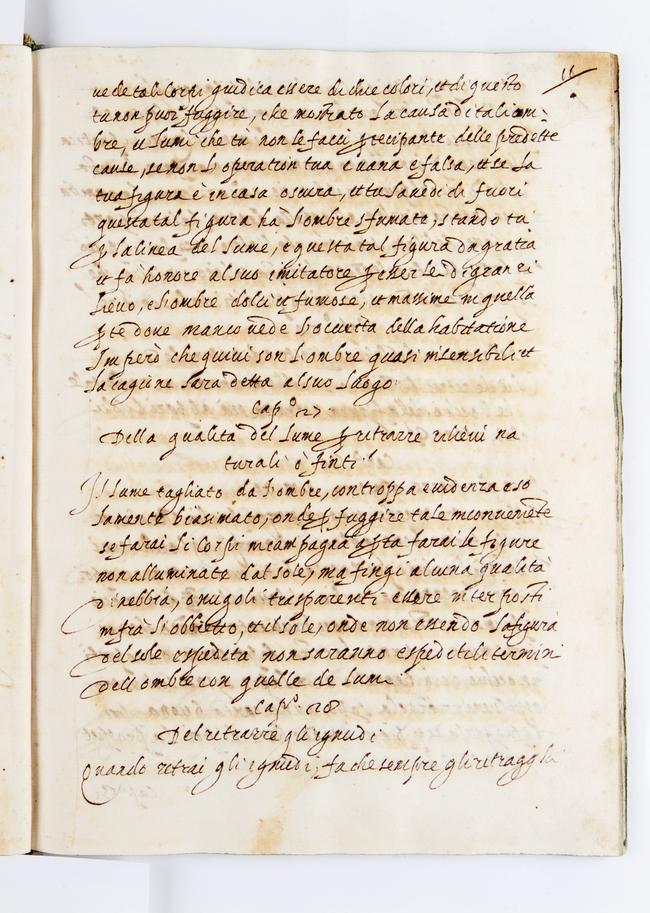 11
vede tali Corpi giudica essere di due colori, et di questo
tu non puoi fuggire, che mostrato la causa di tali om=
bre, u lumi che tù non le facci ꝑtecipante delle predette
cause, se non l'operation tua è uana e falsa, et se la
tua figura è in casa oscura, et tu la uedi di fuori
questa tal figura hà l'ombre sfumate, stando tù
ꝑ la linea del lume, e questa tal figura dà gratia
et fà honore al suo imitatore ꝑ esser le di gran ri
lieuo, e l'ombre dolci et fumose, et massime in quella
ꝑte doue manco uede l'oscurità della habitatione
Imperò che quiui son l'ombre quasi insensibili et
la cagione sarà detta al suo luogo
Cap.º 27
Della qualità del lume ꝑ ritrarre rilieui na
turali ò finti
Il lume tagliato da l'ombre, con troppa euidenza è so
lamente biasimato, onde ꝑ fuggire tale inconueniēte
se farai li Corpi in campagna aꝑta farai le figure
non alluminate dal sole, ma fingi alcuna qualità
di nebbia, o nugoli trasparenti essere interposti
infrà l'obbietto, et il sole, onde non essendo la figura
del sole espedita non saranno espediti li termini
dell ombre con quelle de lumi
Cap.º 28
Del ritrarre gli ignudi
Quando ritrai gli ignudi, fa che sempre gli ritragghi